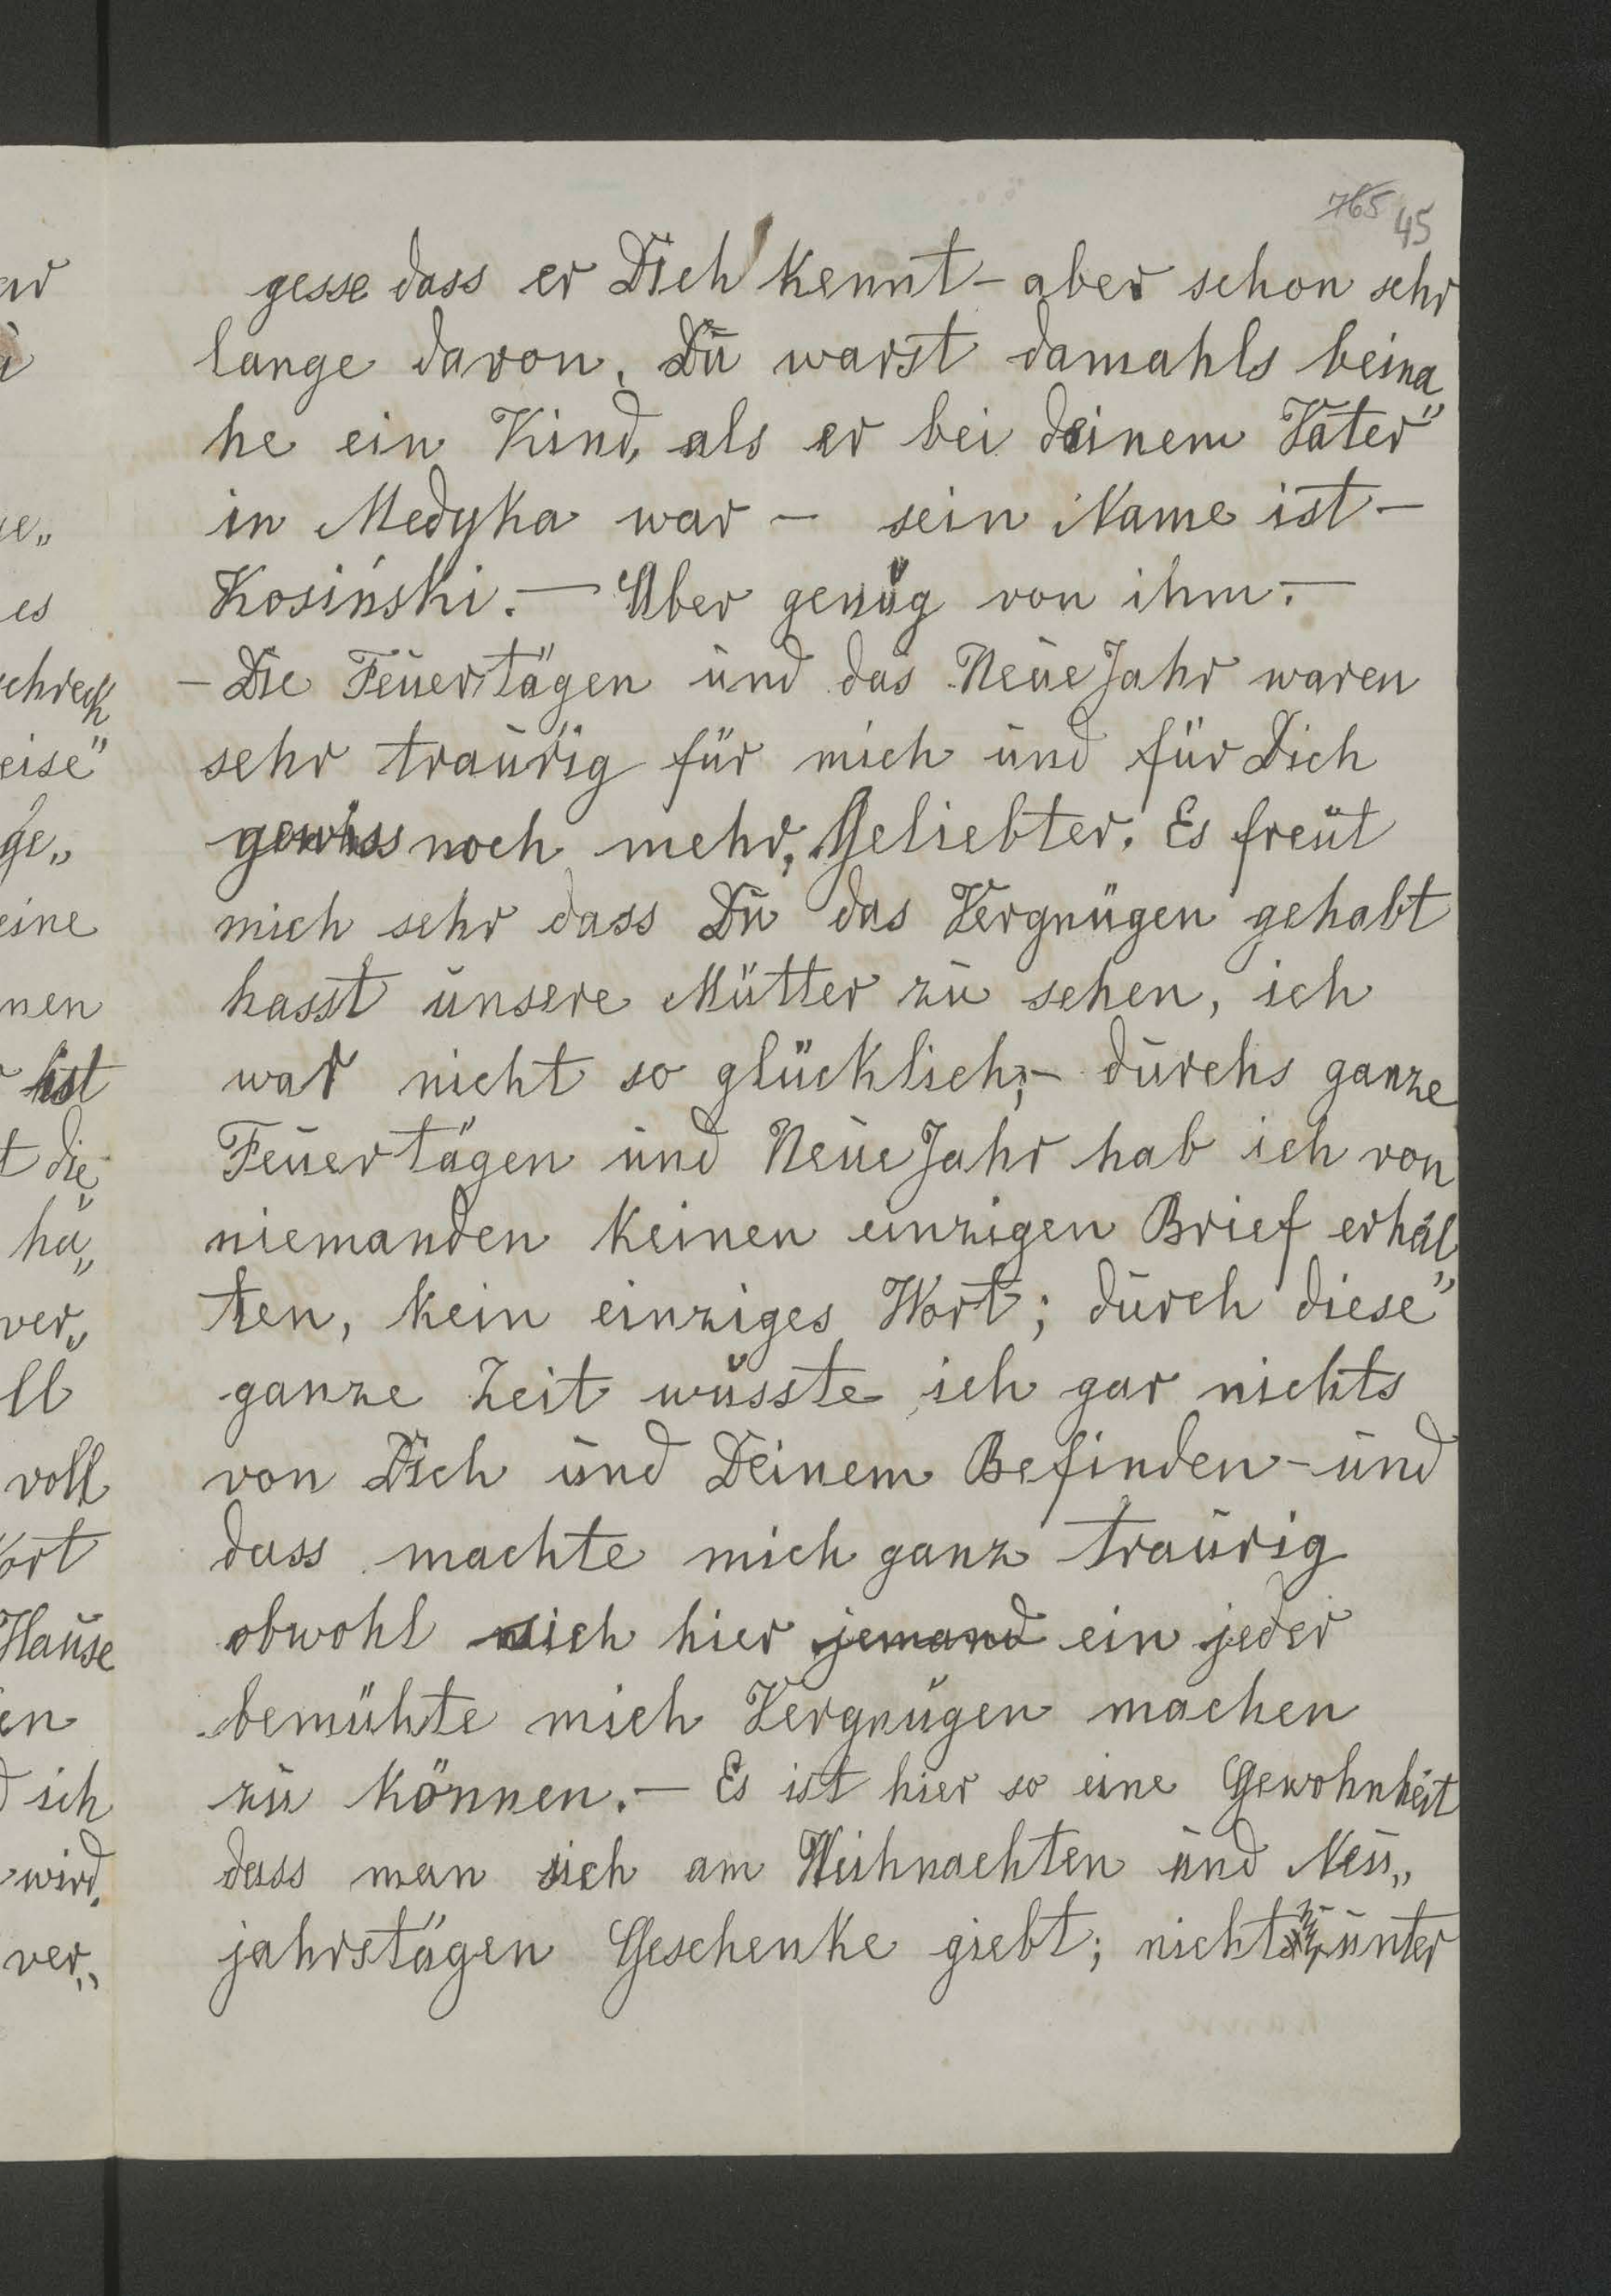 765 45
gesse dass er Dich kennt - aber schon sehr
lange davon. Du warst damahls beina„
he ein Kind, als er bei deinem Vater
in Medyka war — sein Name ist —
Kosiński. — Aber genug von ihm. —
- Die Feuertägen und das Neue Jahr waren
sehr traurig für mich und für Dich
gewiss noch mehr, Geliebter. Es freut
mich sehr dass Du das Vergnügen gehabt
hasst unsere Mutter zu sehen, ich
war nicht so glücklich; - durchs ganze
Feuertägen und Neue Jahr hab ich von
niemanden keinen einzigen Brief erhal„
ten, kein einziges Wort; durch diese
ganze Zeit wusste ich gar nichts
von Dich und Deinem Befinden - und
dass machte mich ganz traurig
obwohl sich hier jemand ein jeder
bemühte mich Vergnügen machen
zu können. — Es ist hier so eine Gewohnheit
dass man sich am Weihnachten und Neu„
jahrstägen Geschenke giebt; nicht unter
ar
ue„
es
schreck
eise"
ge„
eine
nen
ist
t die
ha„
ver„
ll
voll
Wort
Hause
en
d ich
wird,
ver„